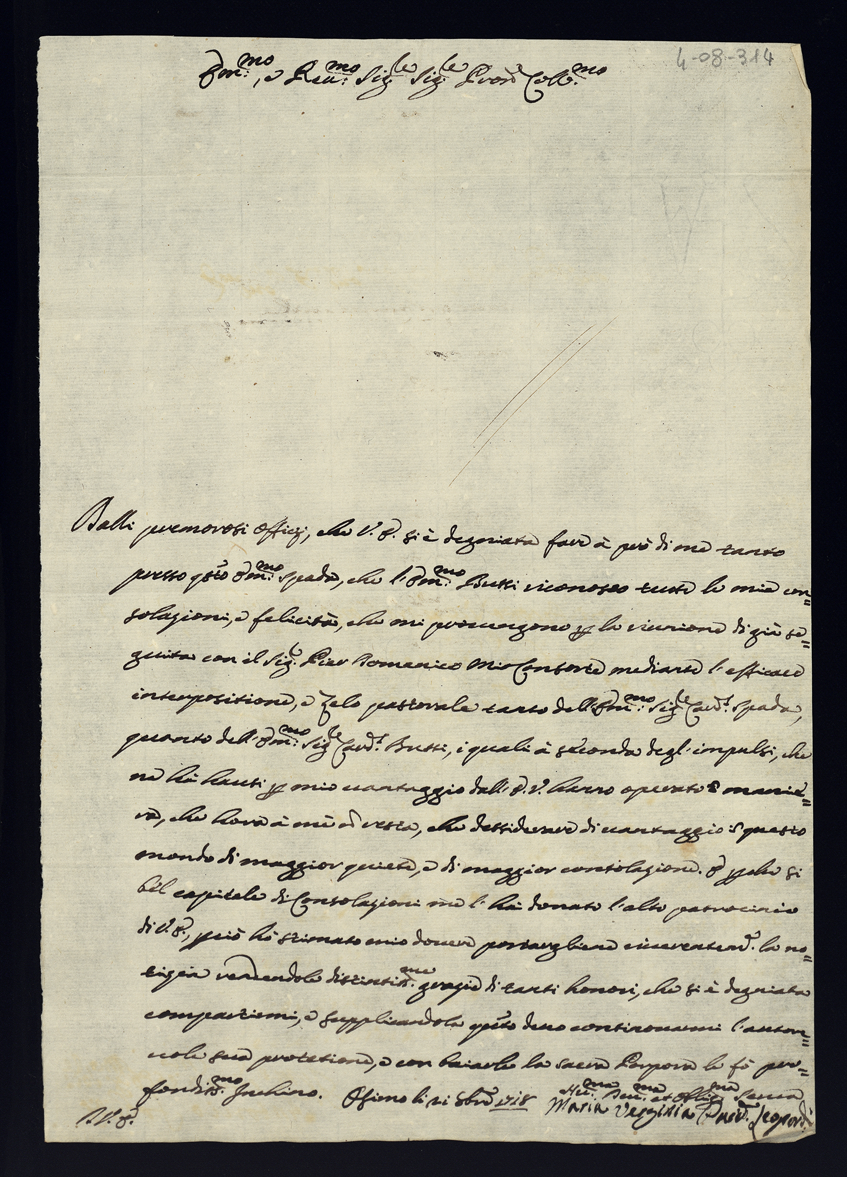 4-08-314
Em:mo, e Reu:mo Sig:re Sig:re Pron Coll:mo
Dalli premorosi Offizj, che V. E. si è degniata fare à prò di me tanto
presso q:sto Em:mo Spada, che l'Em:mo Bussi riconosco tutte le mie con=
solazioni, e felicità, che mi provengono p la riunione di già se=
guita con il Sig:e Pier Domenico Mio Consorte mediante l'efficace
interpositione, e Zelo pastorale tanto dell'Em:mo Sig:re Card: Spada,
quanto dell'Em:mo Sig:re Card: Bussi, i quali à seconda degl'impulsi, che
ne hà hauti p mio vantaggio dall'E. V. hanno operato manie=
ra, che hora à mè resta, che dessiderare di vantaggio questo
mondo di maggior quiete, e di maggior consolazione. E pche si
bel capitale di Consolazioni me l'hà donato l'alto patrocinio
di V. E., pciò hò stimato mio dovere portargliene riverentem: la no=
tizia rendendole distintis:me grazie di tanti honori, che si è degniata
compartirmi, e supplicandola q:sto devo continouarmi l'autor=
uole sua protetione, e con baiarle la sacra Porpora le fò pro=
fondis:mo Inchino. Osimo li 21 8bre 1718
Hu:ma Deu:ma et Oblig:ma Serua
Maria Verginia Leopardi
D. V. E.